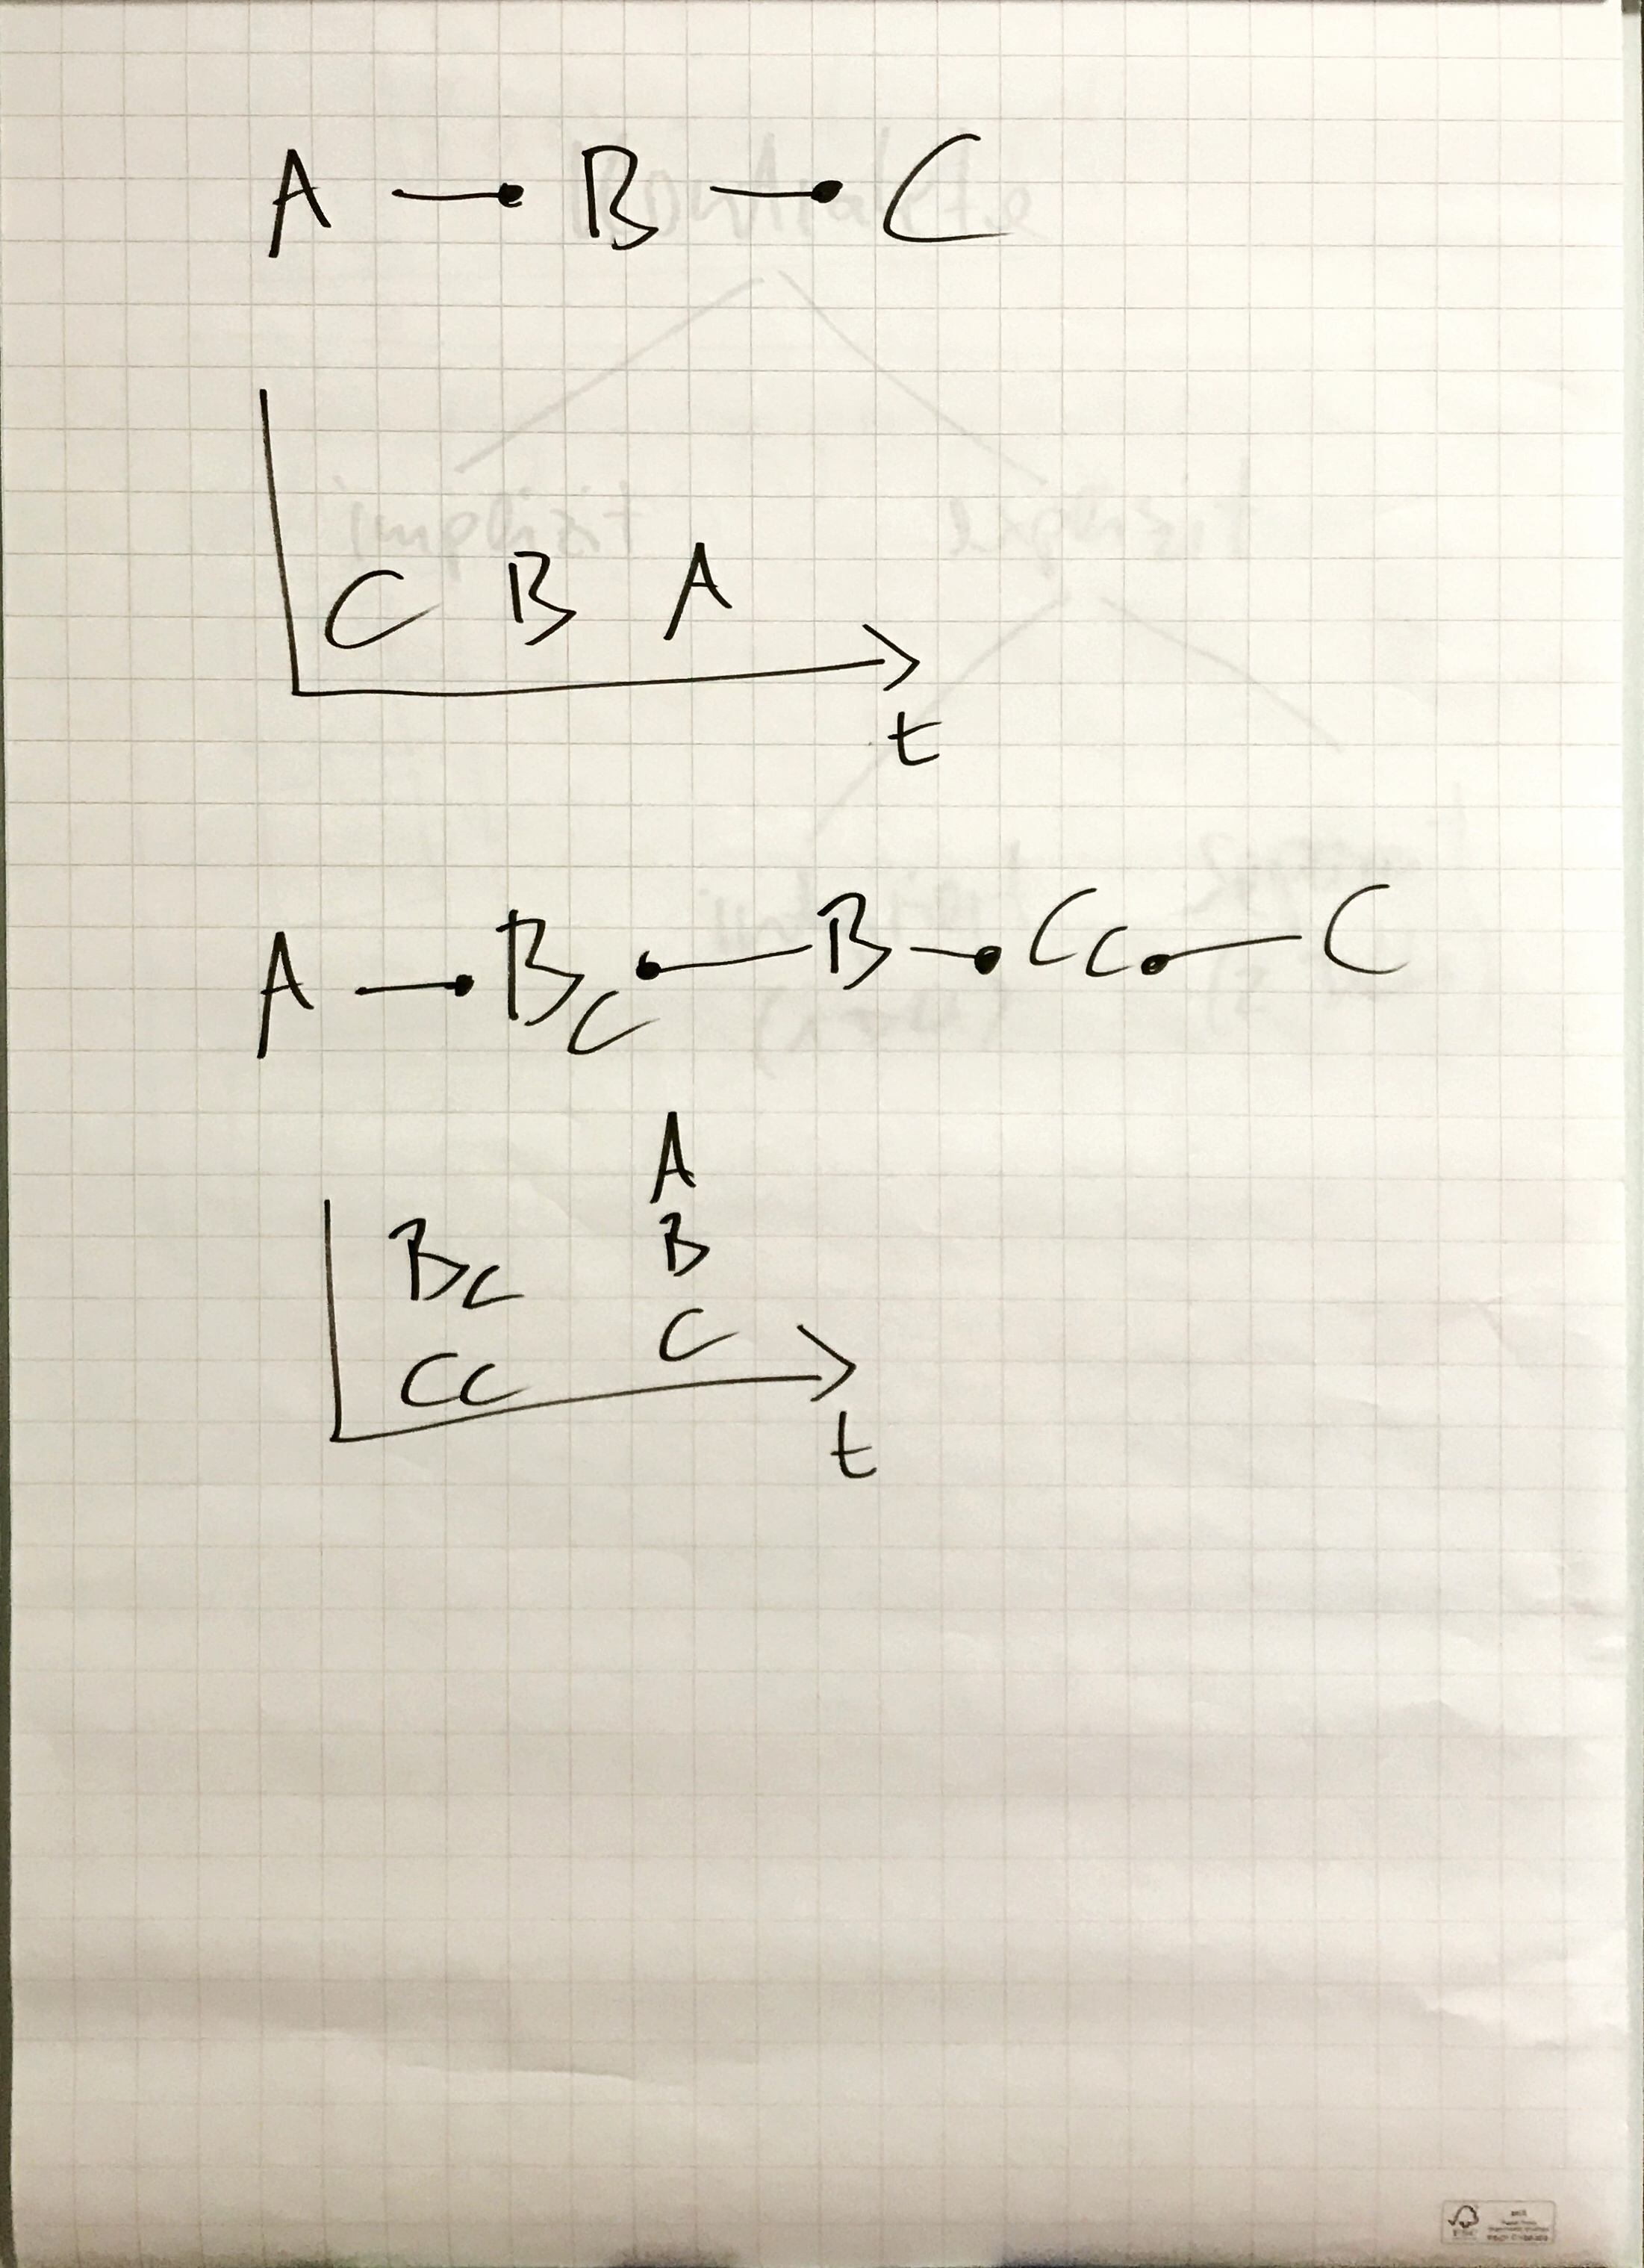 A B C
C B A
t
A Bc B Cc C
A
Bc B
Cc C
t